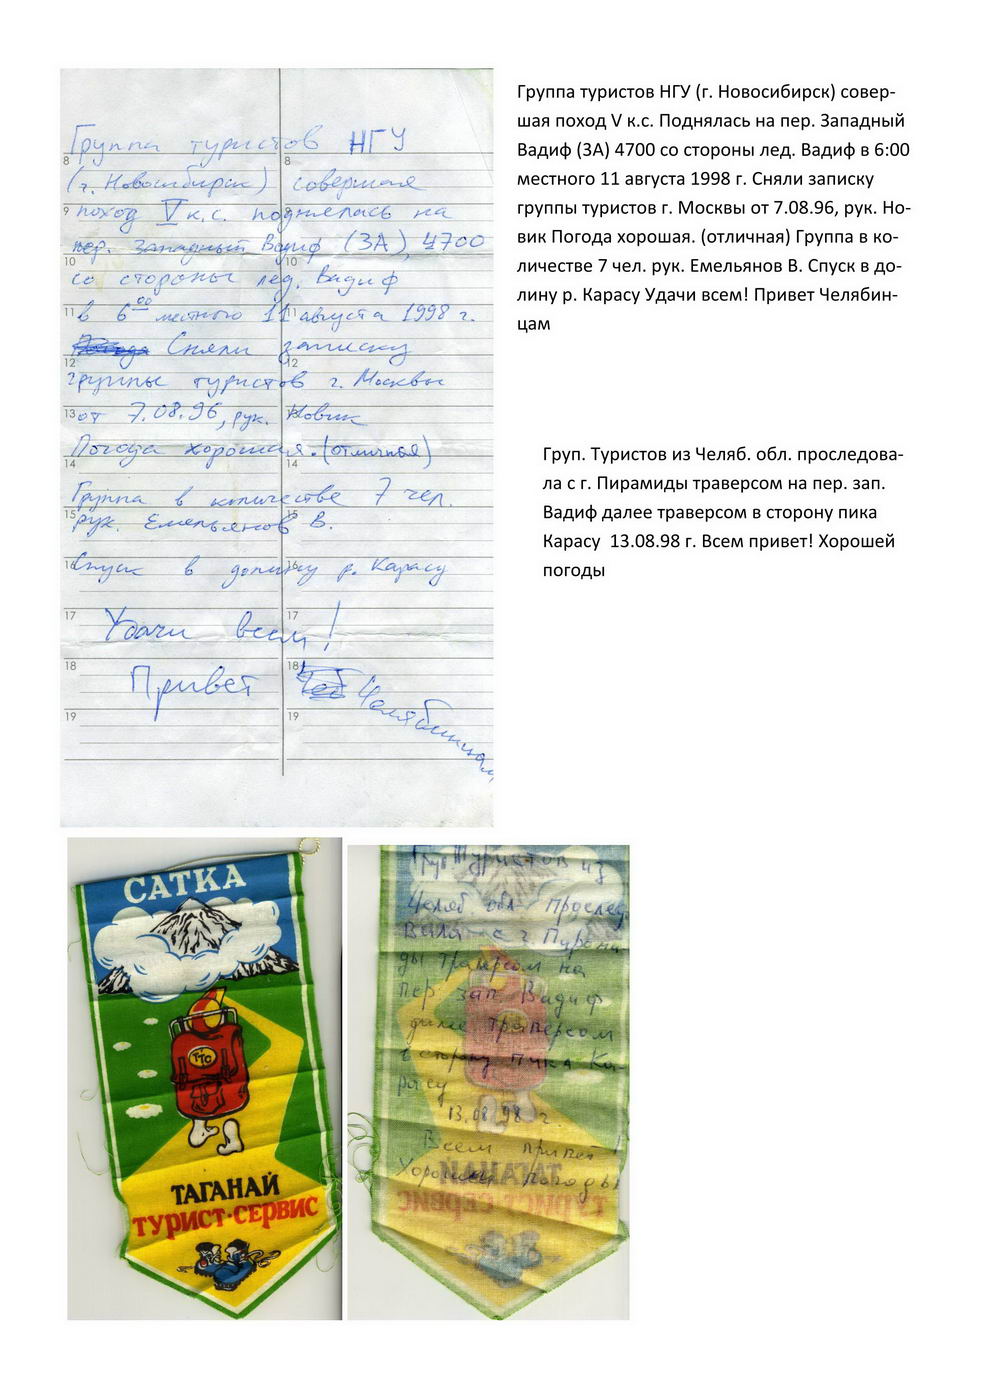 Группа туристов НГУ
(г. Новосибирск) совершая
поход V к.с. поднялась на
пер. западный Вадиф (3А), 4700
со стороны лед. Вадиф
в 6 00 местного 11 августа 1998 г.
Сняли записку
группы туристов г. Москвы
от 7.08.96, рук. Новик
Погода хорошая. (отличная)
Группа в количестве 7 чел.
рук. Емельянов В.
Спуск в долину р. Карасу
Удачи всем!
Привет Челябинцам
8 8
9
10 10
11 11
12 12
13 13
14 14
15 15
16 16
17 17
18 18
19 19
Группа туристов НГУ (г. Новосибирск) совер-
шая поход V к.с. Поднялась на пер. Западный
Вадиф (3А) 4700 со стороны лед. Вадиф в 6:00
местного 11 августа 1998 г. Сняли записку
группы туристов г. Москвы от 7.08.96, рук. Но-
вик Погода хорошая. (отличная) Группа в ко-
личестве 7 чел. рук. Емельянов В. Спуск в до-
лину р. Карасу Удачи всем! Привет Челябин-
цам
Груп. Туристов из Челяб. обл. проследова-
ла с г. Пирамиды траверсом на пер. зап.
Вадиф далее траверсом в сторону пика
Карасу 13.08.98 г. Всем привет! Хорошей
погоды
САТКА
ТТС
ТАГАНАЙ
ТУРИСТ·СЕРВИС
Груп Туристов из
Челяб обл проследо
вала с г. Пирами
ды траверсом на
пер зап Вадиф
далее траверсом
в сторону пика Ка-
расу
13.08.98 г.
Всем привет!
Хорошей погоды
ТАГАНАЙ
ТУРИСТ·СЕРВИС